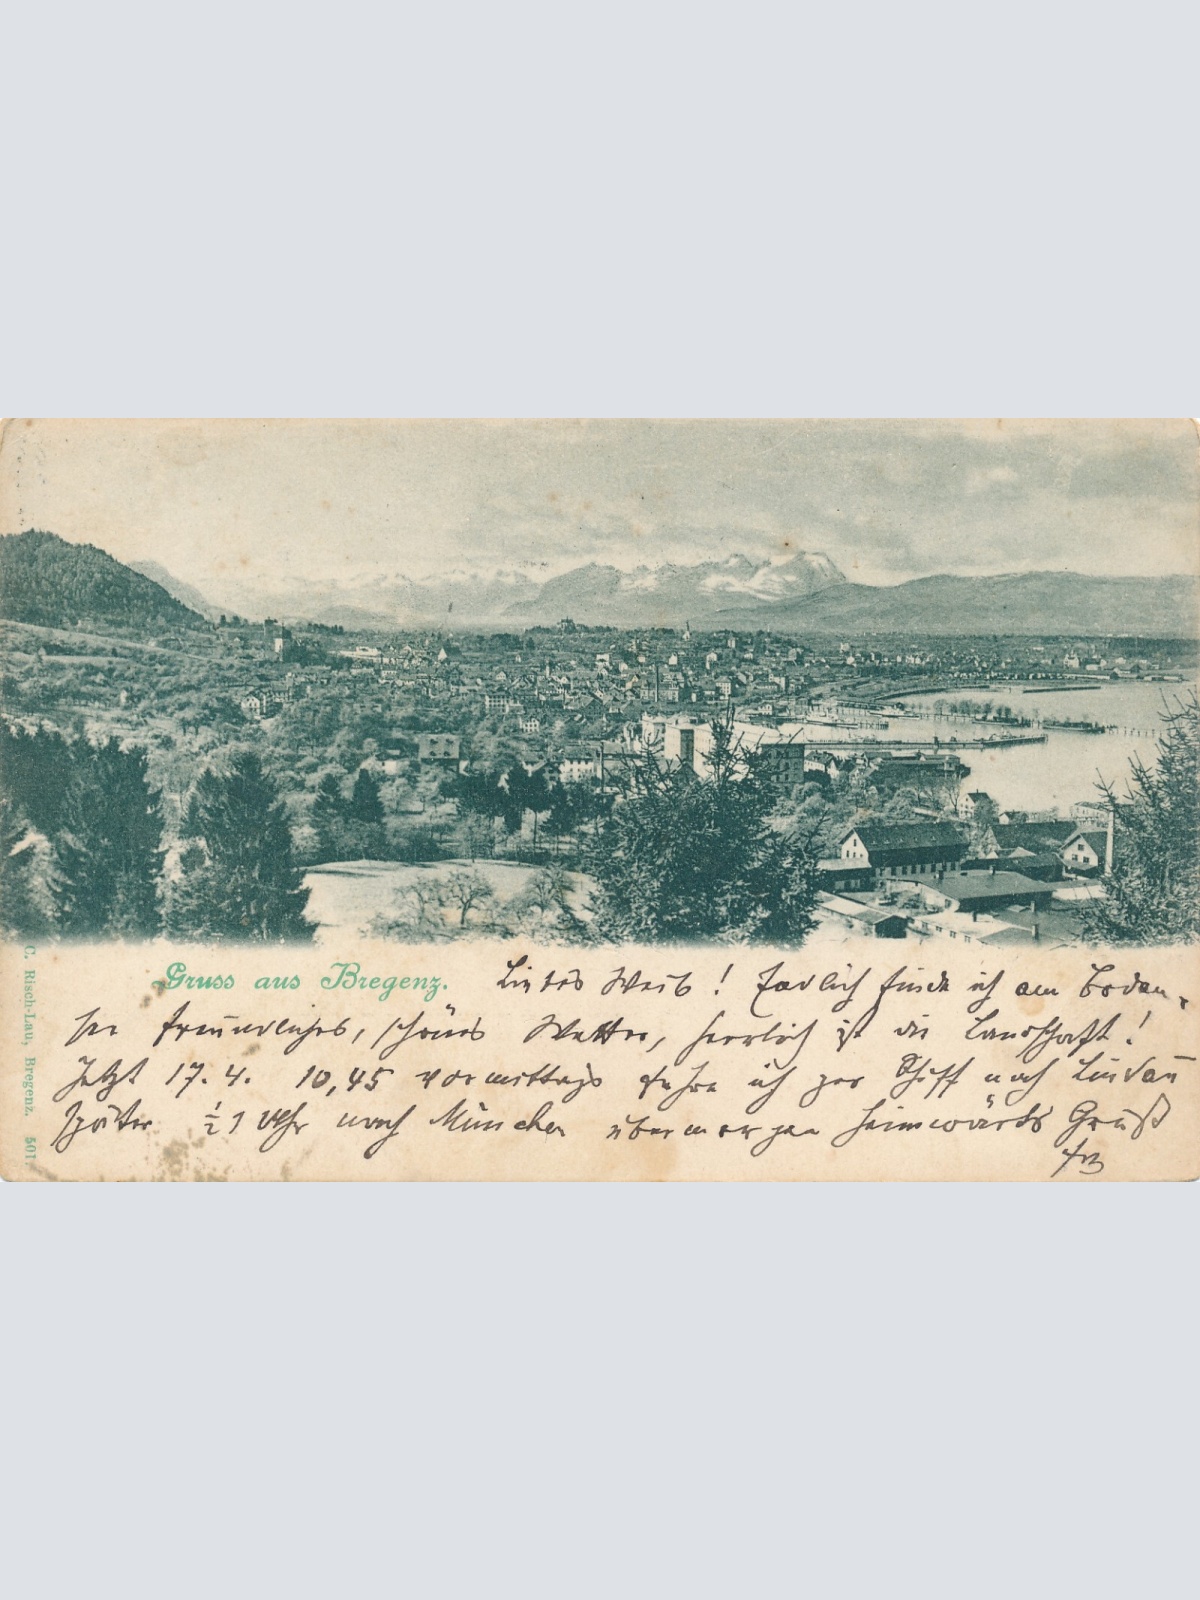 Gruss aus Bregenz. Liebes Weib! Endlich finde ich am Boden-
see freundliches, schönes Wetter, herrlich ist die Landschaft!
Jetzt 17. 4. 10,45 vormittags fahre ich per Schiff nach Lindau
später ½1 Uhr nach München übermorgen heimwärts Gruß
C. Risch-Lau, Bregenz. 501.